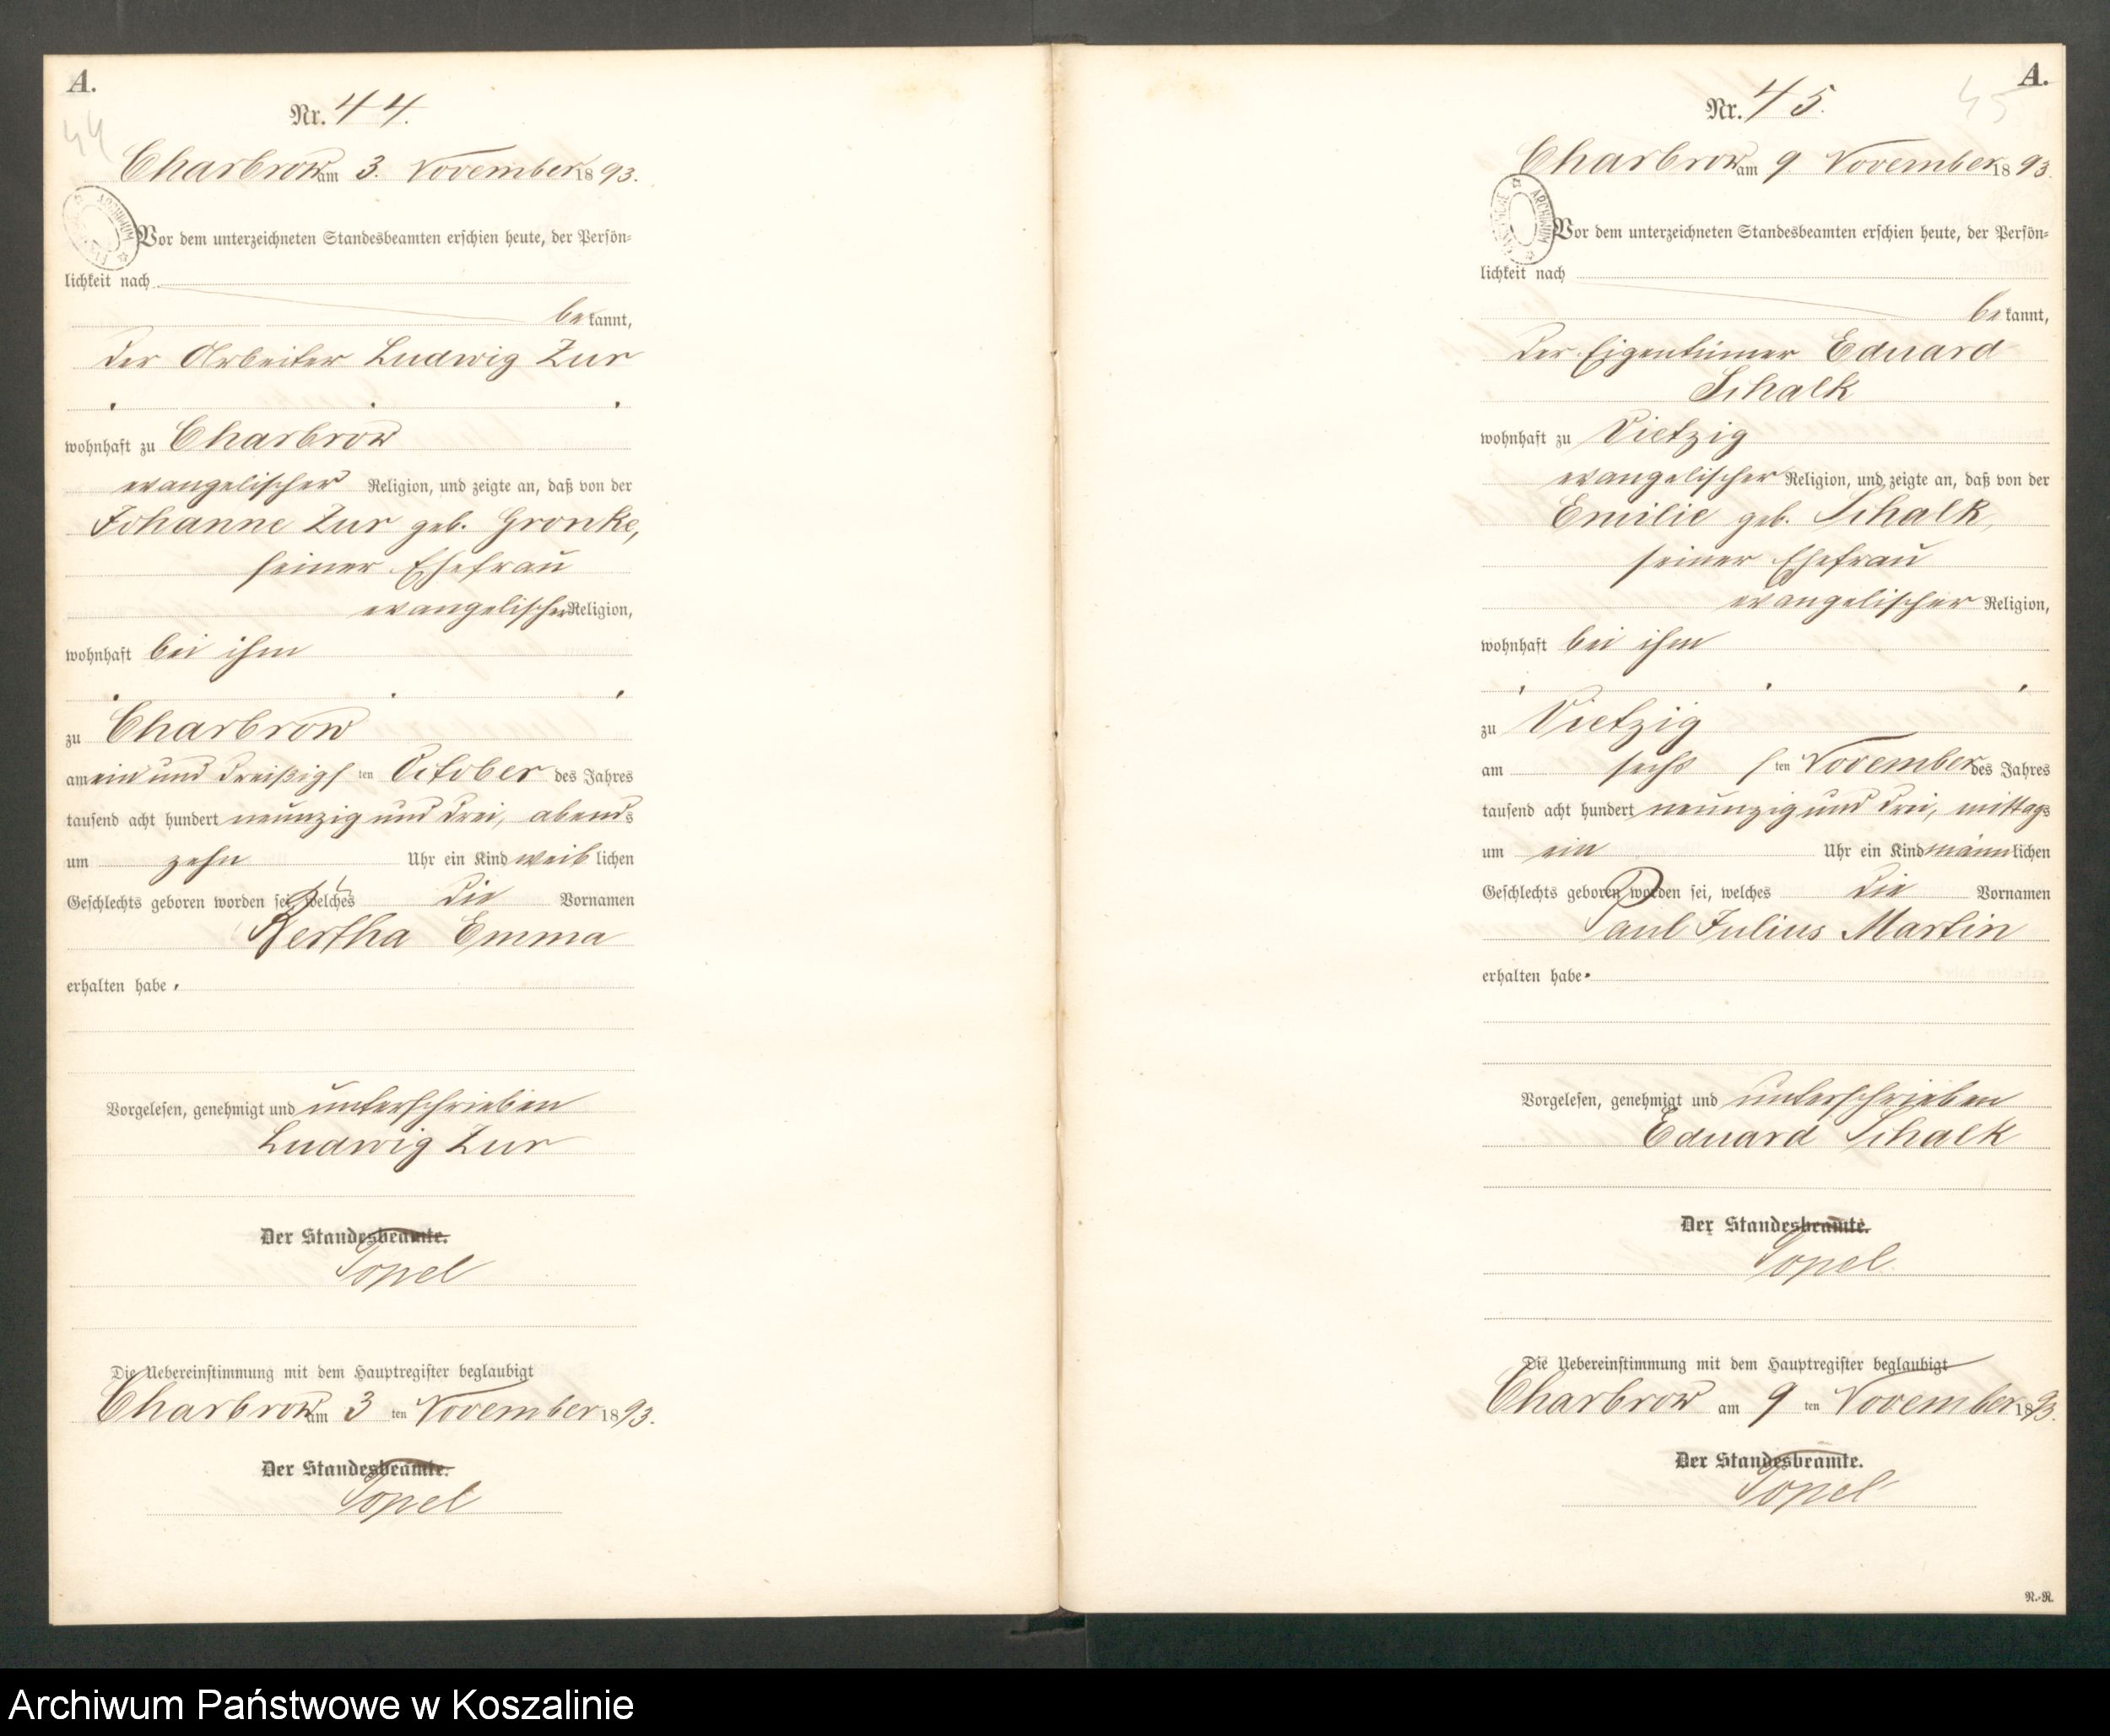 A.
Nr. 44.
44
Charbrow am 3. November 1893.
Vor dem unterzeichneten Standesbeamten erschien heute, der Persön-
lichkeit nach
bekannt,
der Arbeiter Ludwig Zur
wohnhaft zu Charbrow
evangelischer Religion, und zeigte an, daß von der
Johanne Zur geb. Gronke,
seiner Ehefrau
evangelischer Religion,
wohnhaft bei ihm
zu Charbrow
am ein und dreißigsten October des Jahres
tausend acht hundert neunzig und drei, abends
um zehn Uhr ein Kind weiblichen
Geschlechts geboren worden sei, welches die Vornamen
Bertha Emma
erhalten habe.
Vorgelesen, genehmigt und unterschrieben
Ludwig Zur
Der Standesbeamte.
Topel
Die Uebereinstimmung mit dem Hauptregister beglaubigt
Charbrow am 3 ten November 1893.
Der Standesbeamte.
Topel
A.
Nr. 45.
45
Charbrow am 9 November 1893.
ARCHIWUM
Vor dem unterzeichneten Standesbeamten erschien heute, der Persön-
lichkeit nach
bekannt,
der Eigentümer Eduard
Schalk
wohnhaft zu Vietzig
evangelischer Religion, und zeigte an, daß von der
Emilie geb. Schalk,
seiner Ehefrau
evangelischer Religion,
wohnhaft bei ihm
zu Vietzig
am sechsten November des Jahres
tausend acht hundert neunzig und drei, mittags
um ein Uhr ein Kind männlichen
Geschlechts geboren worden sei, welches die Vornamen
Paul Julius Martin
erhalten habe.
Vorgelesen, genehmigt und unterschrieben
Eduard Schalk
Der Standesbeamte.
Topel
Die Uebereinstimmung mit dem Hauptregister beglaubigt
Charbrow am 9 ten November 1893.
Der Standesbeamte.
Topel
N.-R.
Archiwum Państwowe w Koszalinie